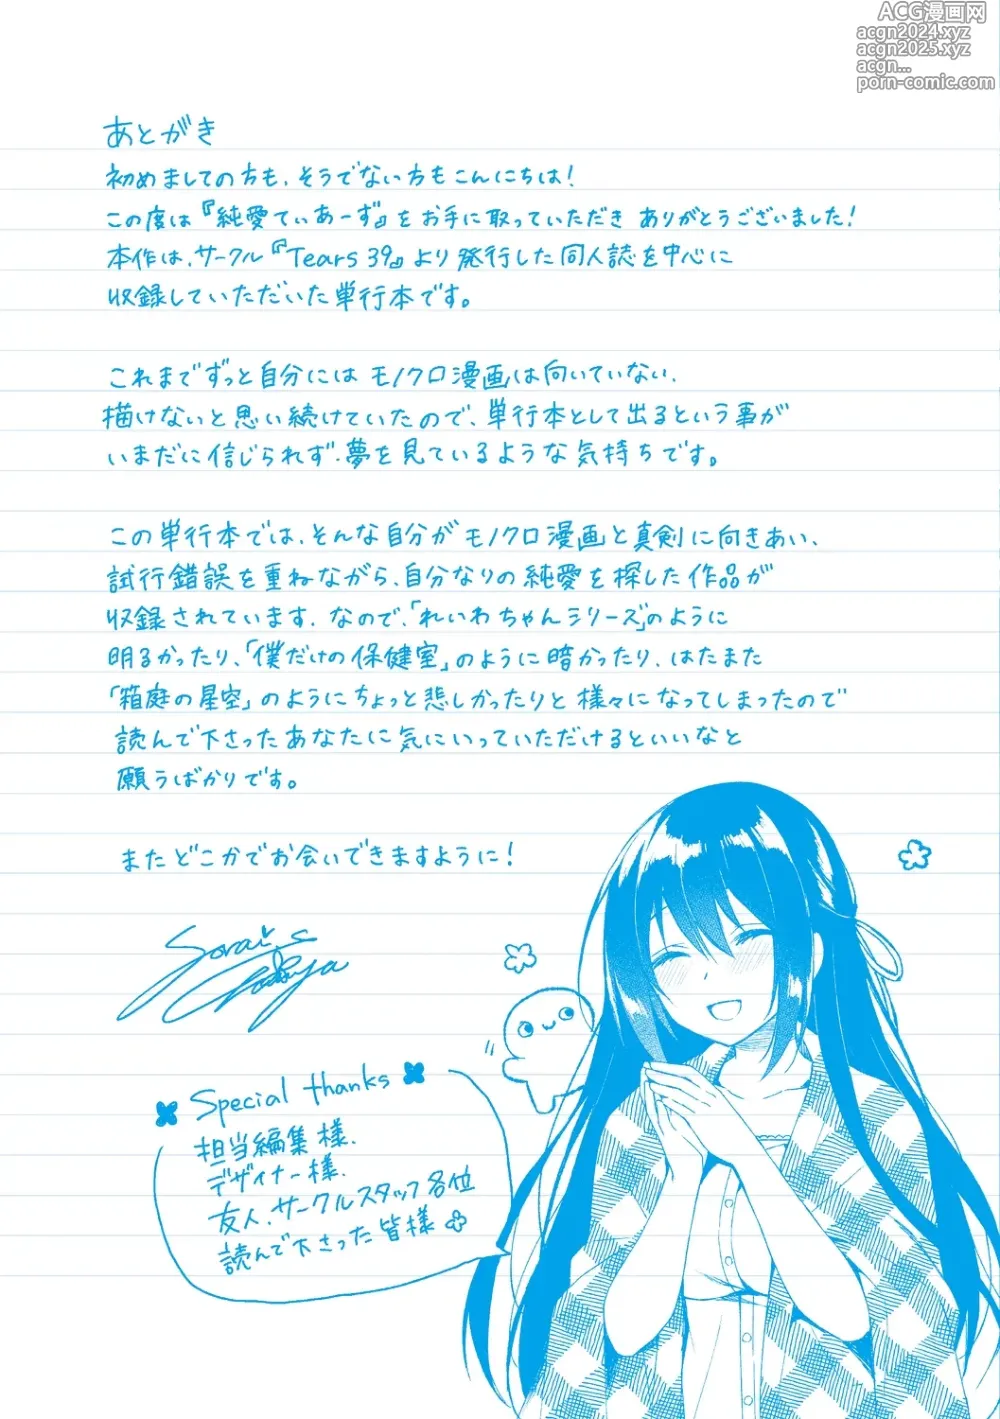 ACG漫画网
acgn2024.xyz
acgn2025.xyz
acgn...
porn-comic.com
あとがき
初めましての方も、そうでない方もこんにちは！
この度は『純愛てぃあーず』をお手に取っていただき ありがとうございました！
本作は、サークル『Tears 39』より発行した同人誌を中心に
収録していただいた単行本です。
これまでずっと自分にはモノクロ漫画は向いていない、
描けないと思い続けていたので、単行本として出るという事が
いまだに信じられず、夢を見ているような気持ちです。
この単行本では、そんな自分がモノクロ漫画と真剣に向きあい、
試行錯誤を重ねながら、自分なりの純愛を探した作品が
収録されています。なので、「れいわちゃんシリーズ」のように
明るかったり、「僕だけの保健室」のように暗かったり、はたまた
「箱庭の星空」のようにちょっと悲しかったりと様々になってしまったので
読んで下さったあなたに気にいっていただけるといいなと
願うばかりです。
またどこかでお会いできますように！
Special thanks
担当編集様、
デザイナー様、
友人、サークルスタッフ各位
読んで下さった皆様